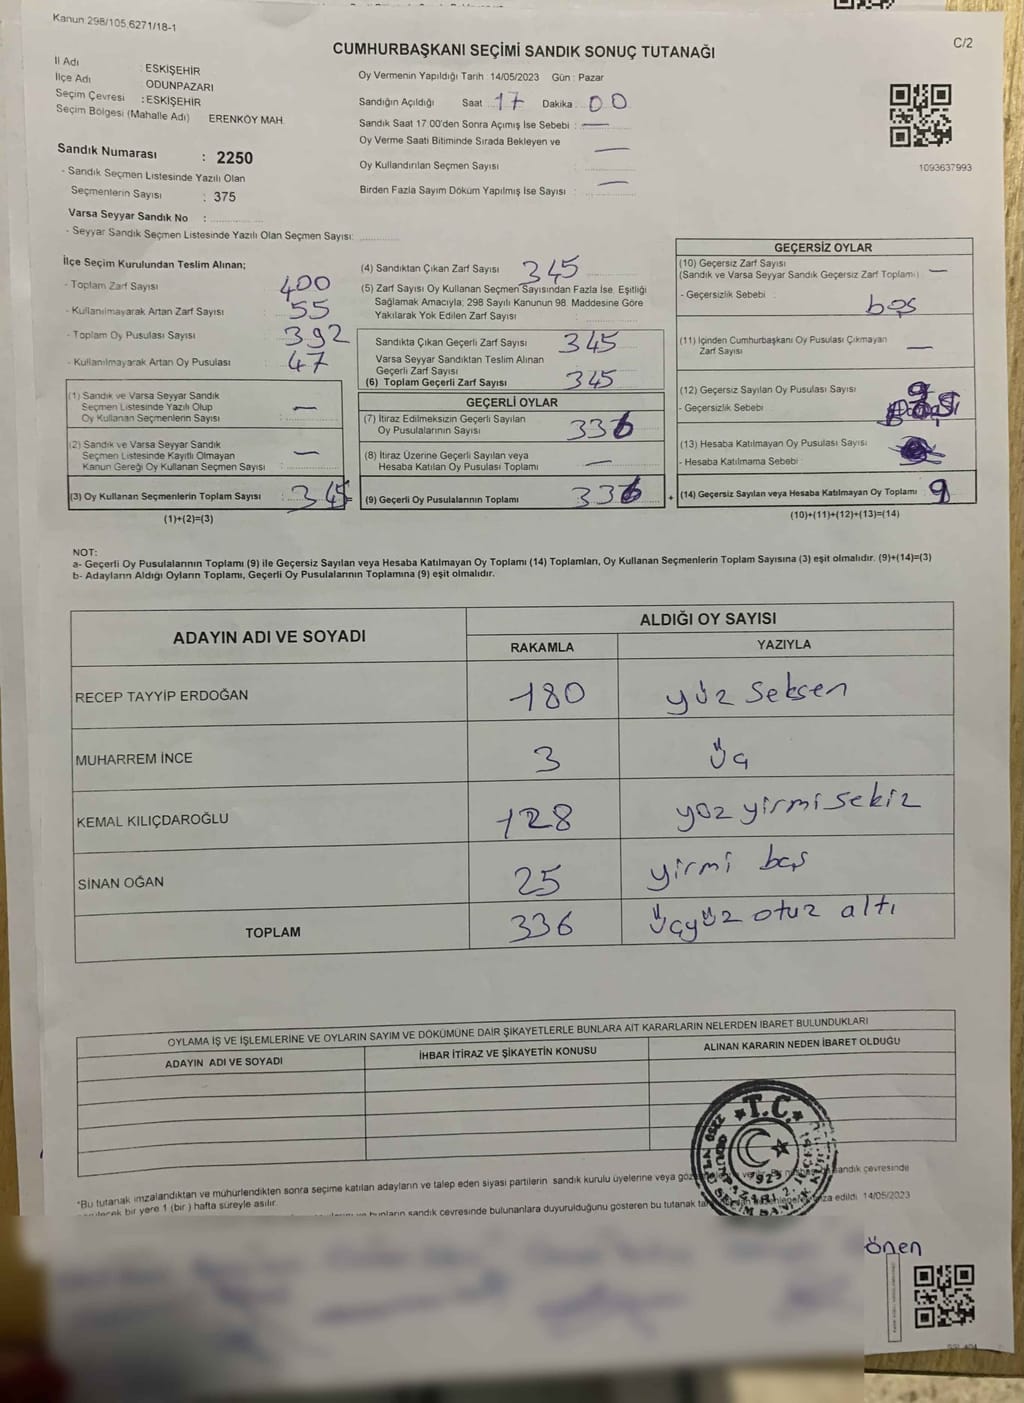 Kanun 298/105,6271/18-1
C/2
CUMHURBAŞKANI SEÇİMİ SANDIK SONUÇ TUTANAĞI
İl Adı : ESKİŞEHİR
İlçe Adı : ODUNPAZARI
Seçim Çevresi : ESKİŞEHİR
Seçim Bölgesi (Mahalle Adı) ERENKÖY MAH.
Sandık Numarası : 2250
- Sandık Seçmen Listesinde Yazılı Olan
Seçmenlerin Sayısı : 375
Varsa Seyyar Sandık No :
- Seyyar Sandık Seçmen Listesinde Yazılı Olan Seçmen Sayısı:
Oy Vermenin Yapıldığı Tarih : 14/05/2023 Gün : Pazar
Sandığın Açıldığı Saat 17 Dakika 00
Sandık Saat 17:00'den Sonra Açımış İse Sebebi : —
Oy Verme Saati Bitiminde Sırada Bekleyen ve
Oy Kullandırılan Seçmen Sayısı : —
Birden Fazla Sayım Döküm Yapılmış İse Sayısı : —
1093637993
İlçe Seçim Kurulundan Teslim Alınan;
- Toplam Zarf Sayısı : 400
- Kullanılmayarak Artan Zarf Sayısı : 55
- Toplam Oy Pusulası Sayısı : 392
- Kullanılmayarak Artan Oy Pusulası : 47
(1) Sandık ve Varsa Seyyar Sandık
Seçmen Listesinde Yazılı Olup
Oy Kullanan Seçmenlerin Sayısı : —
(2) Sandık ve Varsa Seyyar Sandık
Seçmen Listesinde Kayıtlı Olmayan
Kanun Gereği Oy Kullanan Seçmen Sayısı : —
(3) Oy Kullanan Seçmenlerin Toplam Sayısı : 345
(1)+(2)=(3)
(4) Sandıktan Çıkan Zarf Sayısı : 345
(5) Zarf Sayısı Oy Kullanan Seçmen Sayısından Fazla İse, Eşitliği
Sağlamak Amacıyla; 298 Sayılı Kanunun 98. Maddesine Göre
Yakılarak Yok Edilen Zarf Sayısı :
Sandıkta Çıkan Geçerli Zarf Sayısı : 345
Varsa Seyyar Sandıktan Teslim Alınan
Geçerli Zarf Sayısı
(6) Toplam Geçerli Zarf Sayısı : 345
GEÇERLİ OYLAR
(7) İtiraz Edilmeksizin Geçerli Sayılan
Oy Pusulalarının Sayısı : 336
(8) İtiraz Üzerine Geçerli Sayılan veya
Hesaba Katılan Oy Pusulası Toplamı : —
(9) Geçerli Oy Pusulalarının Toplamı : 336
GEÇERSİZ OYLAR
(10) Geçersiz Zarf Sayısı
(Sandık ve Varsa Seyyar Sandık Geçersiz Zarf Toplamı) —
- Geçersizlik Sebebi : boş
(11) İçinden Cumhurbaşkanı Oy Pusulası Çıkmayan
Zarf Sayısı : —
(12) Geçersiz Sayılan Oy Pusulası Sayısı : 9
- Geçersizlik Sebebi :
(13) Hesaba Katılmayan Oy Pusulası Sayısı
- Hesaba Katılmama Sebebi :
+ (14) Geçersiz Sayılan veya Hesaba Katılmayan Oy Toplamı : 9
(10)+(11)+(12)+(13)=(14)
NOT:
a- Geçerli Oy Pusulalarının Toplamı (9) ile Geçersiz Sayılan veya Hesaba Katılmayan Oy Toplamı (14) Toplamları, Oy Kullanan Seçmenlerin Toplam Sayısına (3) eşit olmalıdır. (9)+(14)=(3)
b- Adayların Aldığı Oyların Toplamı, Geçerli Oy Pusulalarının Toplamına (9) eşit olmalıdır.
ADAYIN ADI VE SOYADI
ALDIĞI OY SAYISI
RAKAMLA YAZIYLA
RECEP TAYYİP ERDOĞAN 180 yüz seksen
MUHARREM İNCE 3 üç
KEMAL KILIÇDAROĞLU 128 yüz yirmi sekiz
SİNAN OĞAN 25 yirmi beş
TOPLAM 336 üçyüz otuz altı
OYLAMA İŞ VE İŞLEMLERİNE VE OYLARIN SAYIM VE DÖKÜMÜNE DAİR ŞİKAYETLERLE BUNLARA AİT KARARLARIN NELERDEN İBARET BULUNDUKLARI
ADAYIN ADI VE SOYADI İHBAR İTİRAZ VE ŞİKAYETİN KONUSU ALINAN KARARIN NEDEN İBARET OLDUĞU
T.C.
1923
*Bu tutanak imzalandıktan ve mühürlendikten sonra seçime katılan adayların ve talep eden siyasi partilerin sandık kurulu üyelerine veya sandık çevresinde
bir yere 1 (bir) hafta süreyle asılır.
bunların sandık çevresinde bulunanlara duyurulduğunu gösteren bu tutanak edildi. 14/05/2023
önen